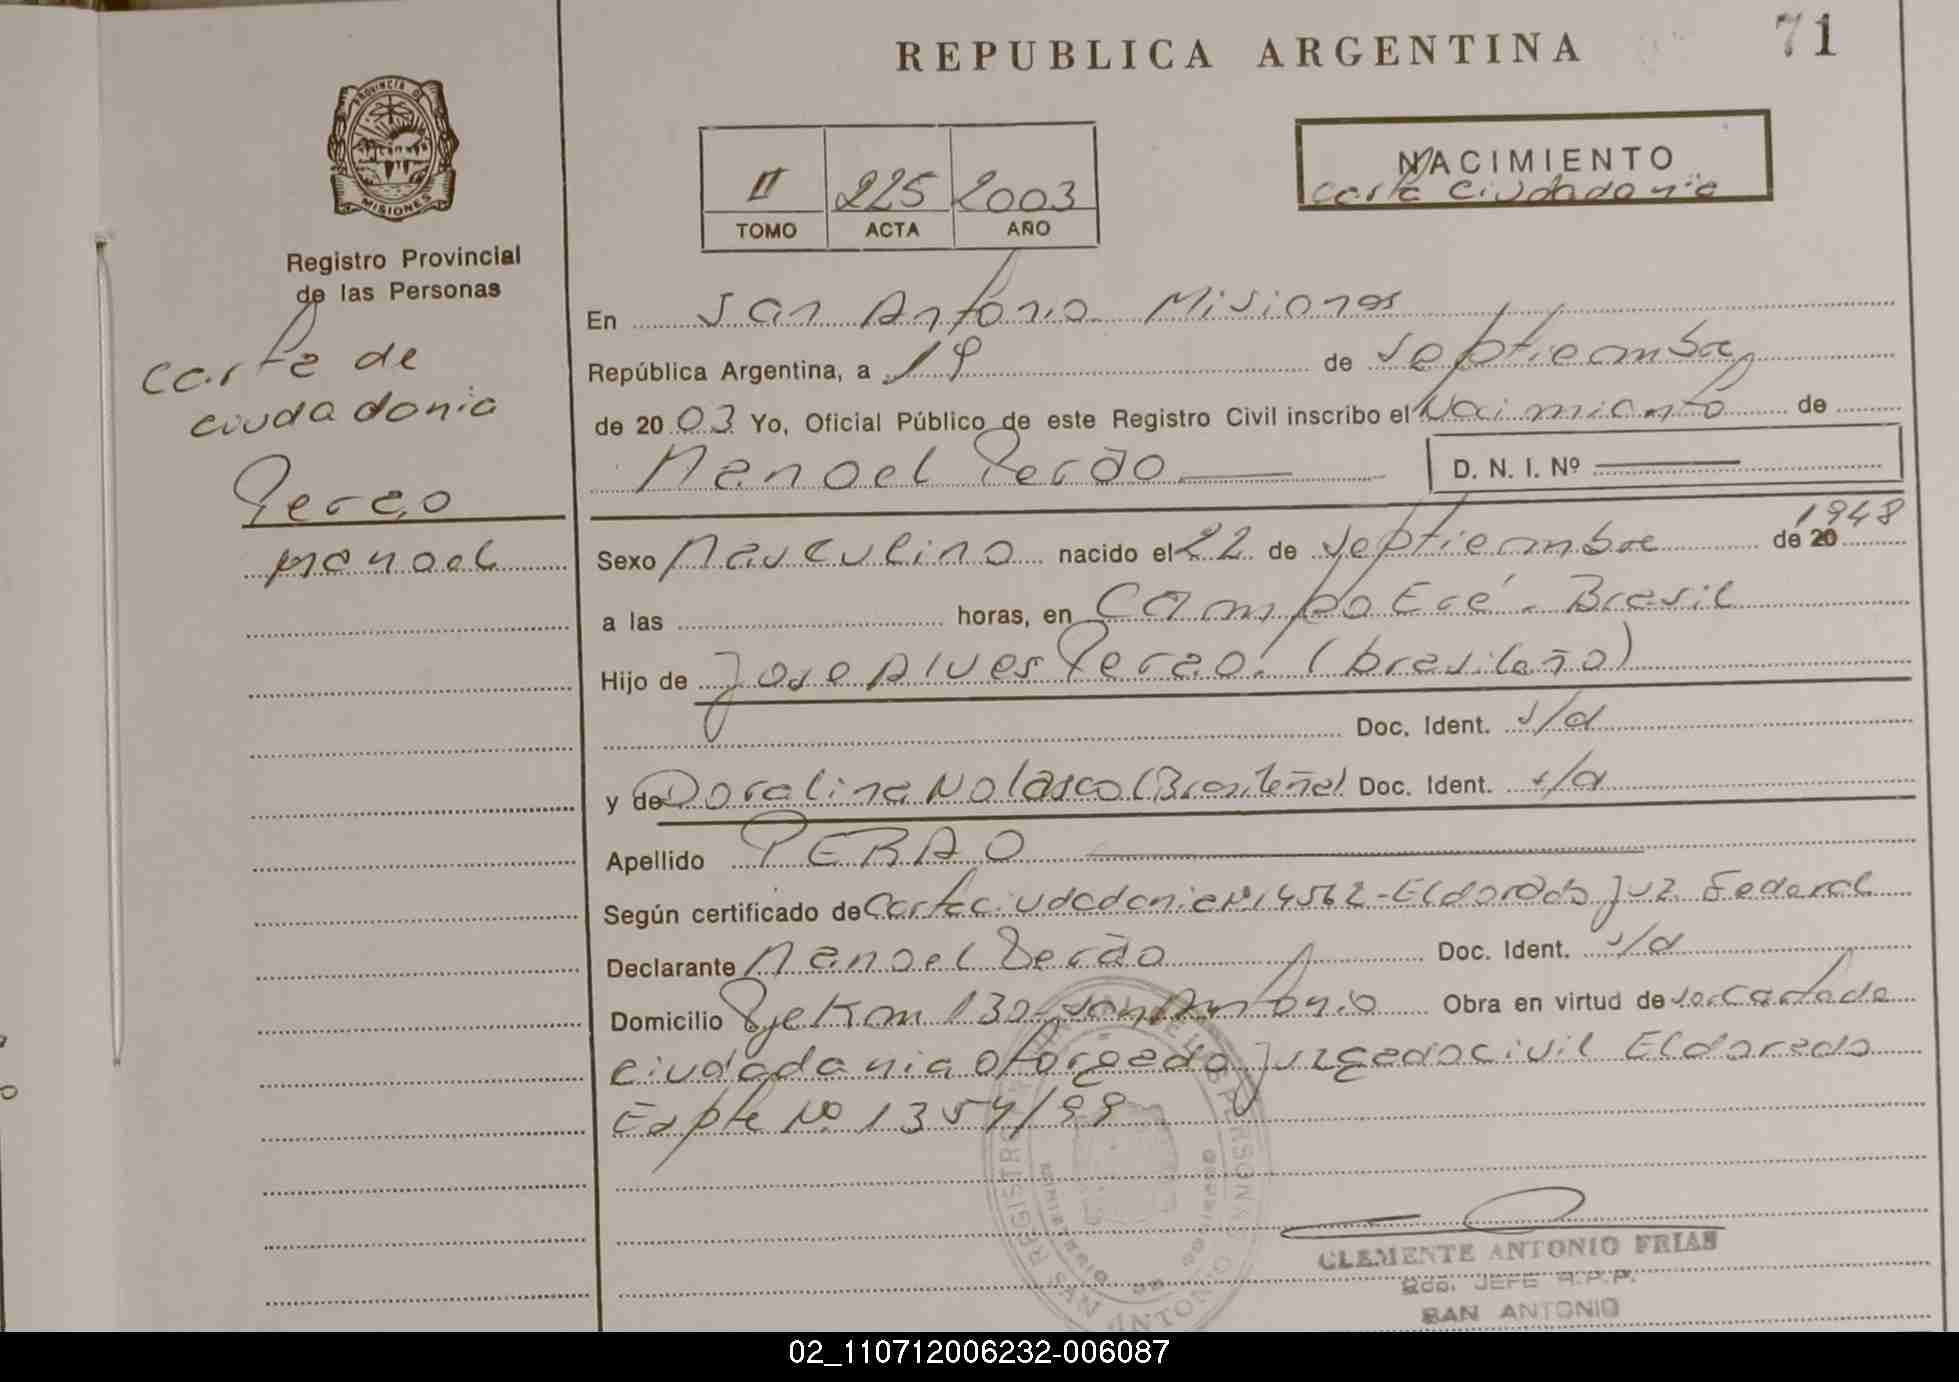 REPUBLICA ARGENTINA
71
PROVINCIA DE
MISIONES
Registro Provincial
de las Personas
Carta de
ciudadania
Perao
Manoel
II 225 2003
TOMO ACTA AÑO
NACIMIENTO
Carta Ciudadania
En San Antonio Misiones
República Argentina, a 19 de Septiembre
de 2003 Yo, Oficial Público de este Registro Civil inscribo el Nacimiento de
Manoel Perão
D. N. I. Nº
Sexo Masculino nacido el 22 de Septiembre de 20 1948
a las horas, en Campo Eré. Brasil
Hijo de Jose Alves Perao. (brasileño)
Doc. Ident. s/d
y de Doralina Nolasco (Brasileña) Doc. Ident. s/d
Apellido PERAO
Según certificado de Carta ciudadania Nº 14562-Eldorado Juz. Federal
Declarante Manoel Perão Doc. Ident. s/d
Domicilio Pje Km 130-San Antonio Obra en virtud de ser Carta de
ciudadania otorgada Juzgado Civil Eldorado
Expte Nº 1354/99
SAN ANTONIO
CLEMENTE ANTONIO FRIAS
JEFE R.P.P.
SAN ANTONIO
02_110712006232-006087